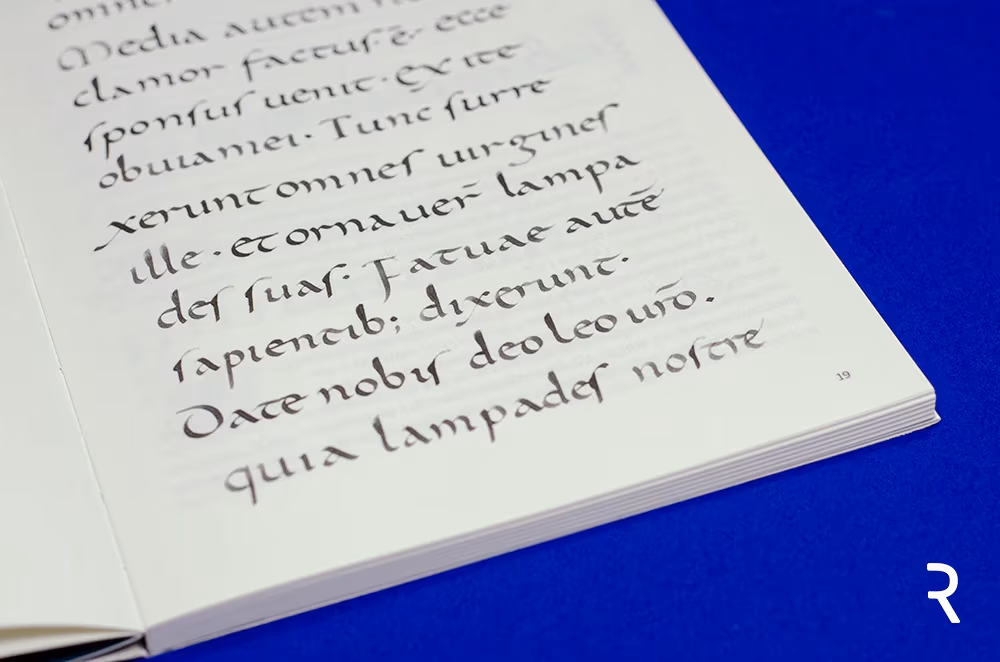 Media autem n
clamor factuſ ē ecce
ſponſuſ uenit · Ex ite
obuiam ei · Tunc ſurre
xerunt omneſ uirgineſ
ille · et ornauer̄ lampa
deſ ſuaſ · Fatuae autē
ſapientib; dixerunt ·
Date nobiſ de oleo ur̄o .
quia lampadeſ noſtre
19
R